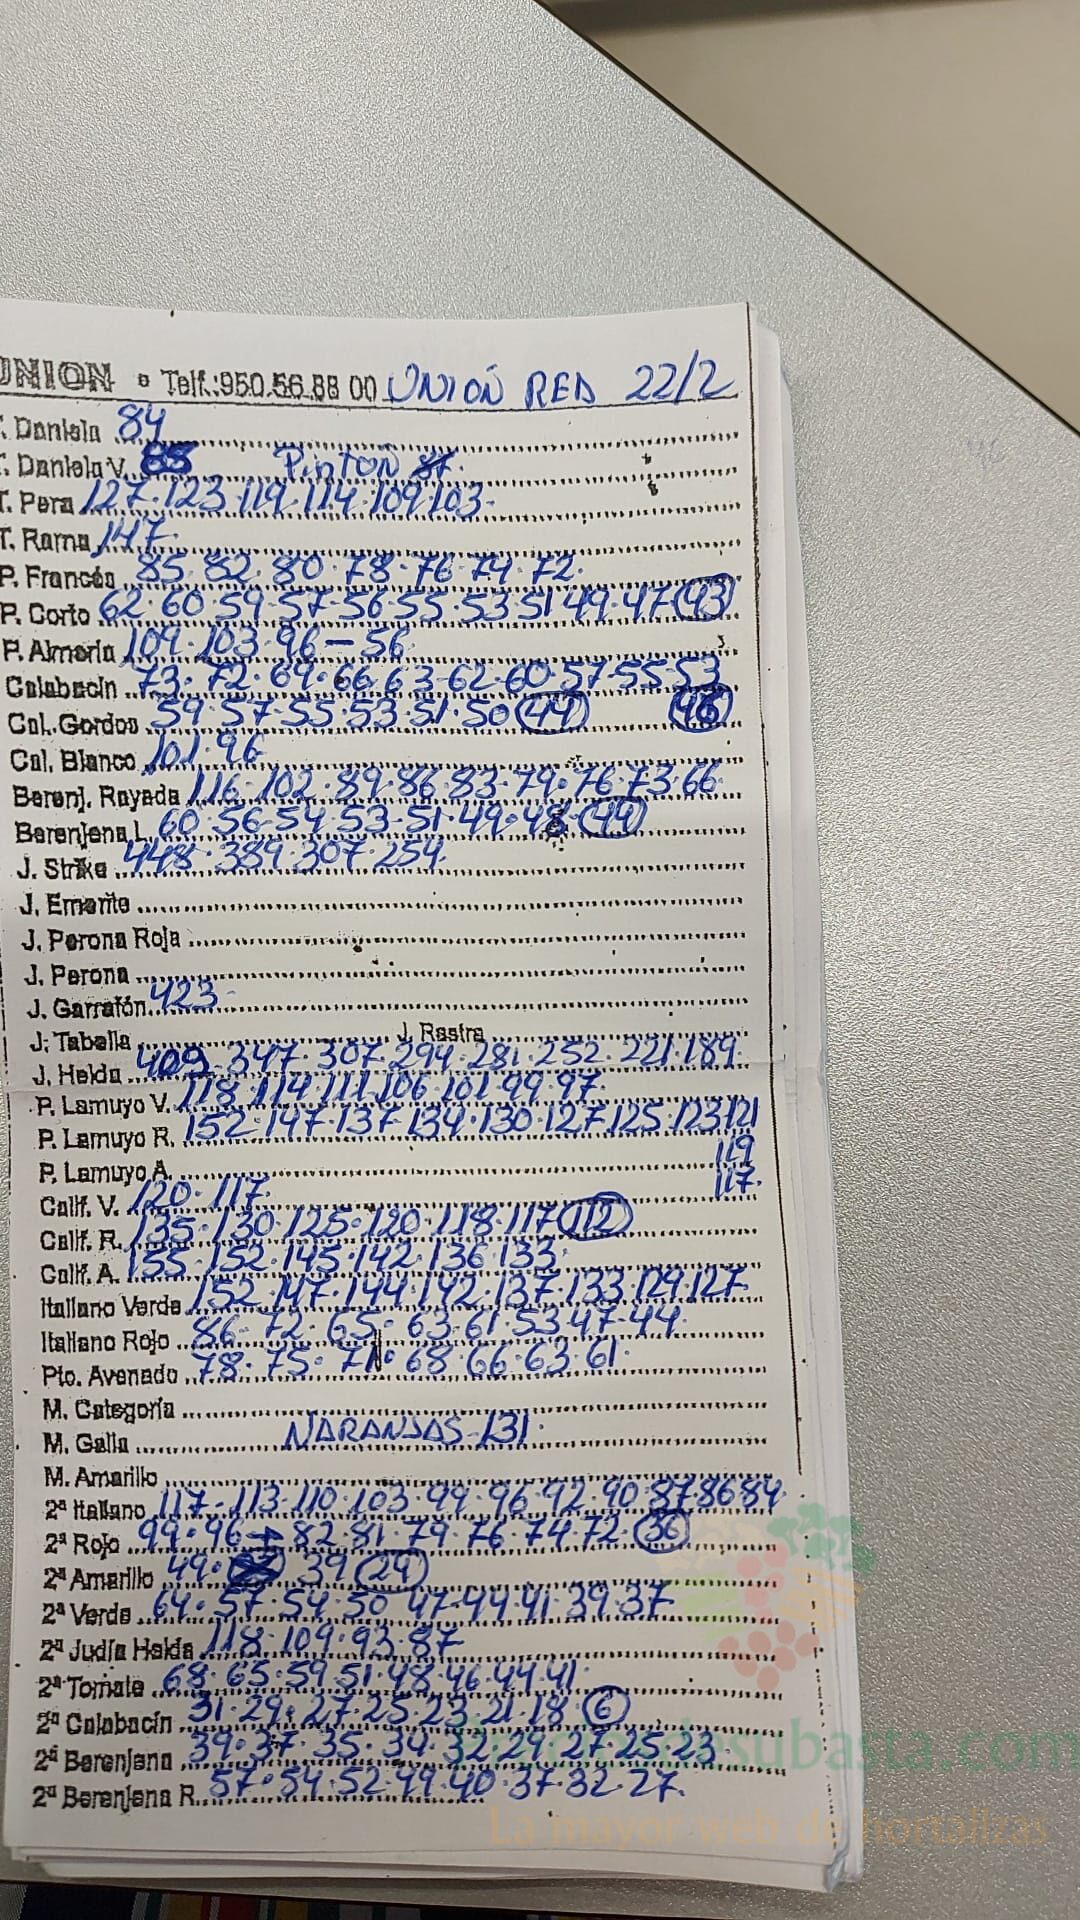 UNION • Telf.:950.56.88 00 UNION RED 22/2
T. Daniela 84
T. Daniela V. 85 Pinton 87
T. Pera 127.123.119.114.109.103
T. Rama 147
P. Francés 85.82.80.78.76.74.72
P. Corto 62.60.59.57.56.55.53.51.49.47 (43)
P. Almería 109.103.96-56
Calabacín 73.72.69.66.63-62-60.57-55-53
Cal. Gordos 59.57.55.53.51.50 (44) (46)
Cal. Blanco 101.96
Berenj. Rayada 116.102.89.86.83-79.76.73.66
Berenjena L. 60.56-54.53-51.49.48 (44)
J. Strike 448.389.307.254
J. Emerite
J. Perona Roja
J. Perona
J. Garrafón 423
J. Tabella J. Rastra
J. Helda 409.347.307.294.281.252.221.189
P. Lamuyo V. 118.114.111.106.101.99.97
P. Lamuyo R. 152.147.137.134.130.127.125.123.121
119
P. Lamuyo A. 117
Calif. V. 120.117
Calif. R. 135.130.125.120.118.117 (112)
Calif. A. 155.152.145.142.136.133
Italiano Verde 152.147.144.142.137.133.129.127
Italiano Rojo 86-72.65.63.61.53.47-44
Pto. Avenado 78.75.71.68.66.63.61
M. Categoría
M. Galia NARANJAS-131
M. Amarillo
2ª Italiano 117-113-110.103.99.96.92.90.87.86.84
2ª Rojo 99.96 → 82.81.79.76.74.72 (36)
2ª Amarillo 49. 39 (29)
2ª Verde 64.57.54.50 47-44.41.39.37
2ª Judía Helda 118.109.93.87
2ª Tomate 68.65.59.51.48.46.44.41
2ª Calabacín 31.29.27.25.23.21.18 (6)
2ª Berenjena 39.37.35.34.32.29.27.25.23
2ª Berenjena R. 57.54.52.49.40.37.32.27
La mayor web de hortalizas